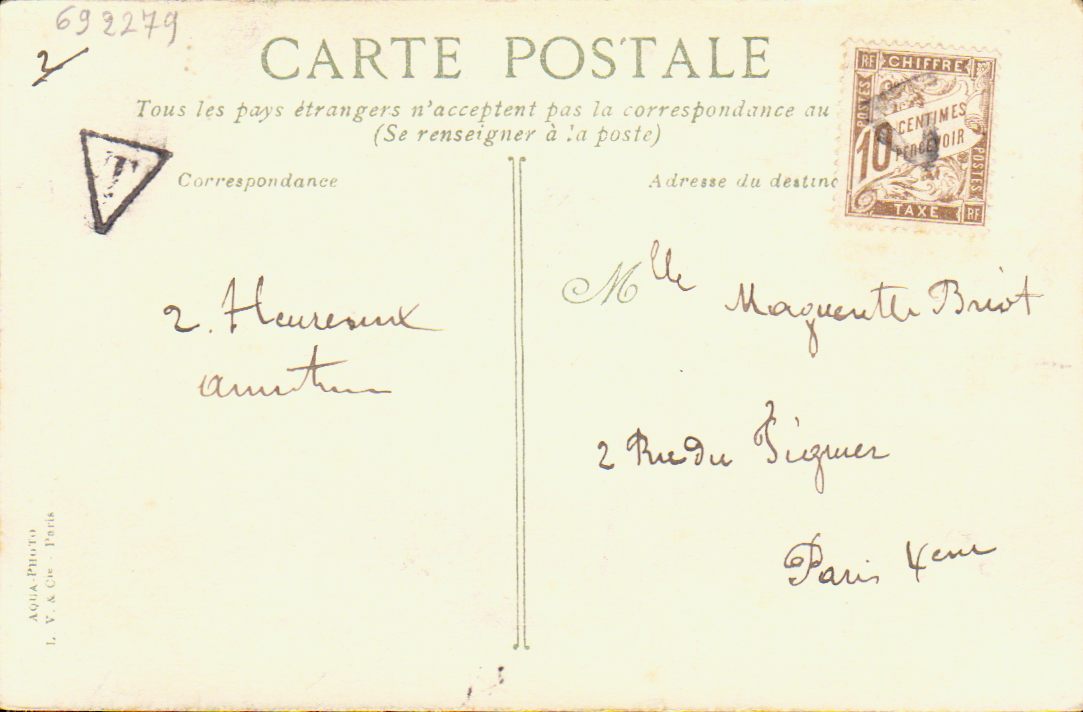 692279
2
CARTE POSTALE
Tous les pays étrangers n'acceptent pas la correspondance au
(Se renseigner à la poste)
RF CHIFFRE
POSTES
10 CENTIMES
PERCEVOIR
POSTES
TAXE RF
T
Correspondance
Adresse du destina
2. Heureux
Mlle Marguerite Briot
2 Rue du Figuier
Paris 4eme
AQUA-PHOTO
L. V. & Cie - Paris